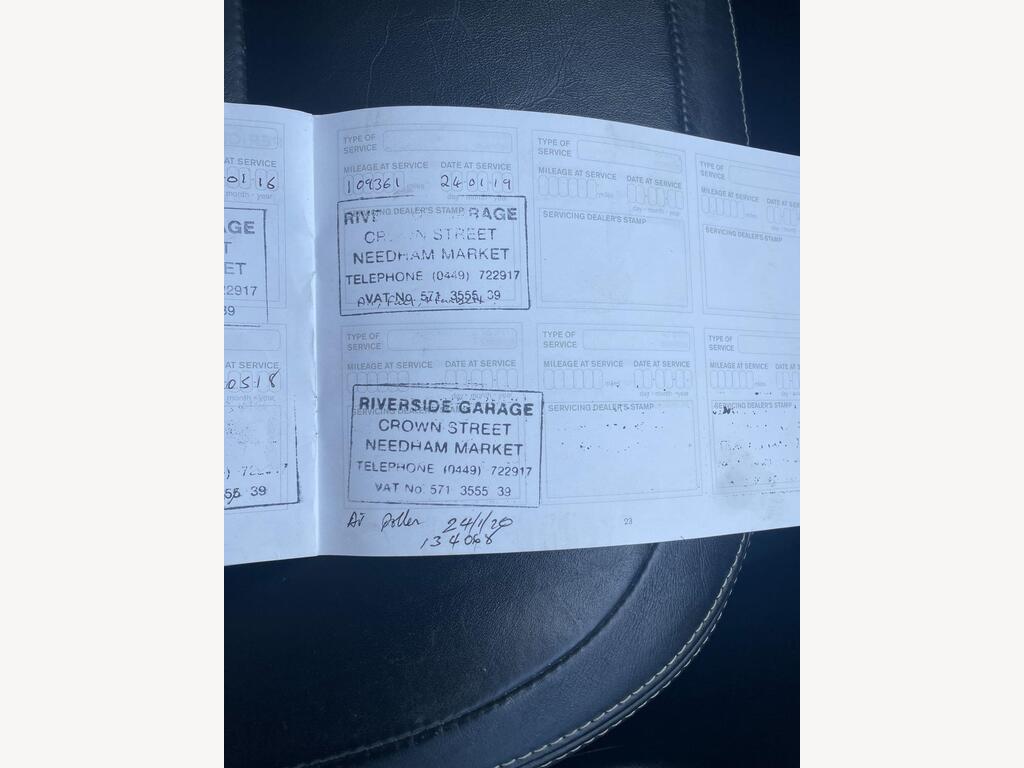 AT SERVICE
01 16
month - year
AGE
T
ET
22917
39
AT SERVICE
0518
month - year
56 39
TYPE OF
SERVICE
MILEAGE AT SERVICE DATE AT SERVICE
109361 miles 24 01 19
day - month - year
SERVICING DEALER'S STAMP
RIVE RAGE
CROWN STREET
NEEDHAM MARKET
TELEPHONE (0449) 722917
VAT No. 571 3555 39
TYPE OF
SERVICE
MILEAGE AT SERVICE DATE AT SERVICE
miles
day - month - year
SERVICING DEALER'S STAMP
TYPE OF
SERVICE
MILEAGE AT SERVICE DATE AT
miles
SERVICING DEALER'S STAMP
TYPE OF
SERVICE
MILEAGE AT SERVICE DATE AT SERVICE
day - month - year
SERVICING DEALER'S STAMP
RIVERSIDE GARAGE
CROWN STREET
NEEDHAM MARKET
TELEPHONE (0449) 722917
VAT No 571 3555 39
24/1/20
134068
TYPE OF
SERVICE
MILEAGE AT SERVICE DATE AT SERVICE
miles
day - month - year
SERVICING DEALER'S STAMP
TYPE OF
SERVICE
MILEAGE AT SERVICE DATE AT S
miles
SERVICING DEALER'S STAMP
23